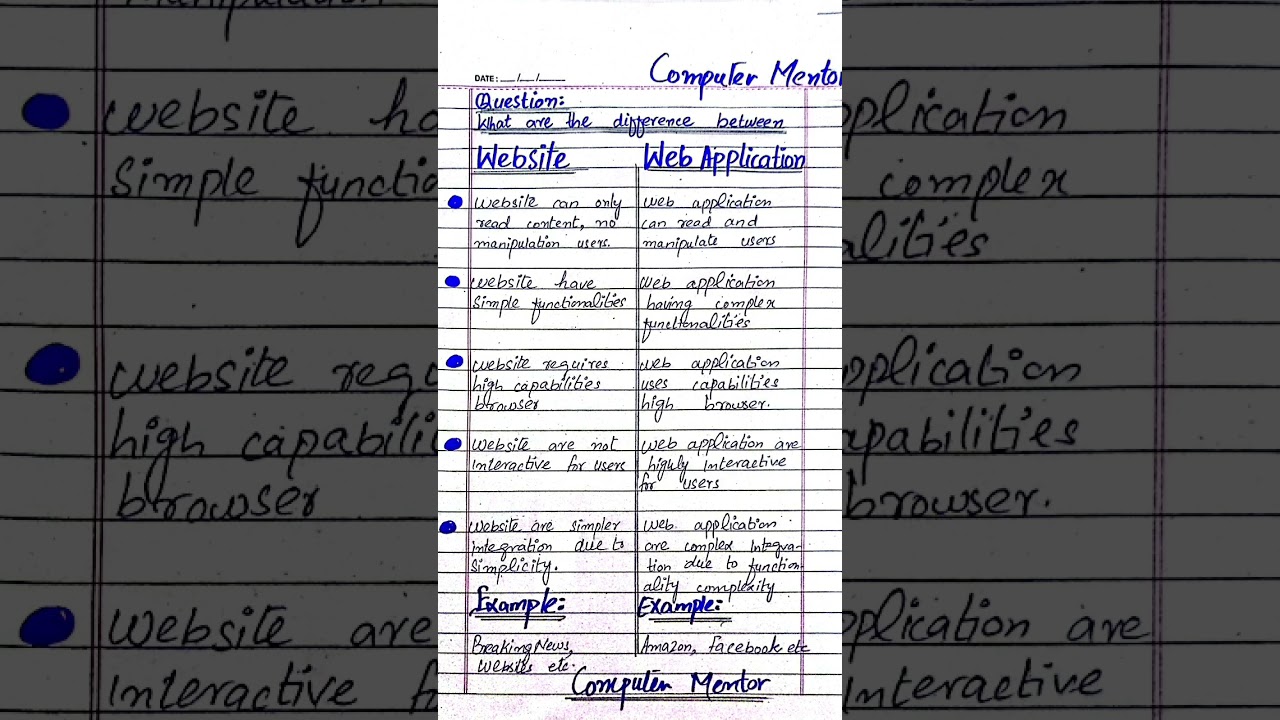 Computer Mentor
DATE: __/__/____
Question:
What are the difference between
Website
Web Application
website can only
read content, no
manipulation users.
web application
can read and
manipulate users
website have
simple functionalities
web application
having complex
functionalities
website requires
high capabilities
browser
web application
uses capabilities
high browser.
website are not
interactive for users
web application are
highly interactive
for users
website are simpler
integration due to
simplicity.
web application
are complex Integra-
tion due to function-
ality complexity
Example:
Breaking News,
websites etc.
Example:
Amazon, facebook etc
Computer Mentor